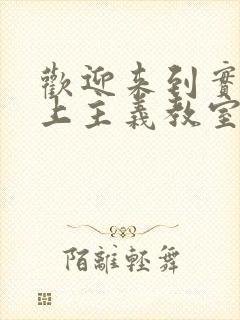 歡迎来到實
上主義教室
陌離輕舞